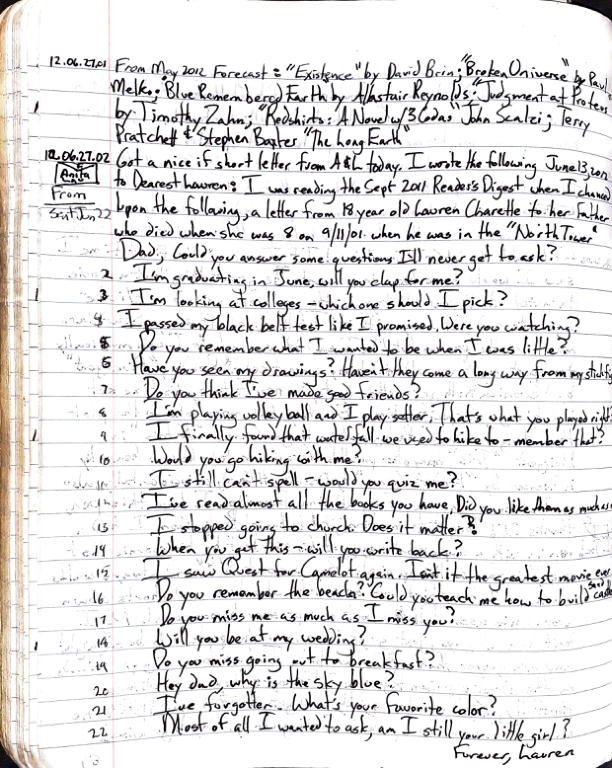 12.06.27.01 From May 2012 Forecast: "Existence" by David Brin; "Broken Universe" by Paul
Melko; Blue Remembered Earth by Alastair Reynolds; "Judgment at Proteus
by Timothy Zahn; "Redshirts: A Novel w/3 Codas" John Scalzi; Terry
Pratchett & Stephen Baxter "The Long Earth"
12.06.27.02 Got a nice if short letter from A&L today. I wrote the following June 13, 2012
Anita
From to Dearest Lauren: I was reading the Sept 2011 Reader's Digest when I chanced
Sent Jun 22 upon the following, a letter from 18 year old Lauren Charette to her father
who died when she was 8 on 9/11/01 when he was in the "North Tower"
Dad, Could you answer some questions I'll never get to ask?
2 I'm graduating in June, will you clap for me?
3 I'm looking at colleges – which one should I pick?
4 I passed my black belt test like I promised. Were you watching?
5 Do you remember what I wanted to be when I was little?
6 Have you seen my drawings? Haven't they come a long way from my
7 Do you think I've made good friends?
8 I'm playing volleyball and I play setter, That's what you played right?
9 I finally found that waterfall we used to hike to – member that?
10 Would you go hiking with me?
11 I still can't spell – would you quiz me?
12 I've read almost all the books you have, Did you like them as much as
13 I stopped going to church. Does it matter?
14 When you get this – will you write back?
15 I saw Quest for Camelot again. Isn't it the greatest movie ever
16 Do you remember the beach? Could you teach me how to build sand castles
17 Do you miss me as much as I miss you?
18 Will you be at my wedding?
19 Do you miss going out to breakfast?
20 Hey dad, why is the sky blue?
21 I've forgotten. What's your favorite color?
22 Most of all I wanted to ask, am I still your little girl?
Forever, Lauren